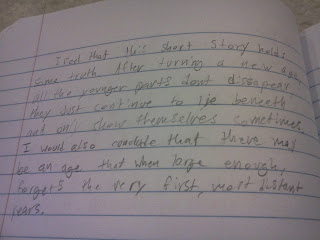 I feel that this short story holds
some truth. After turning a new age,
all the younger parts dont disapear
they just continue to lie beneath
and only show themselves sometimes.
I would also conclude that there may
be an age that when large enough,
forgets the very first, most distant
years.